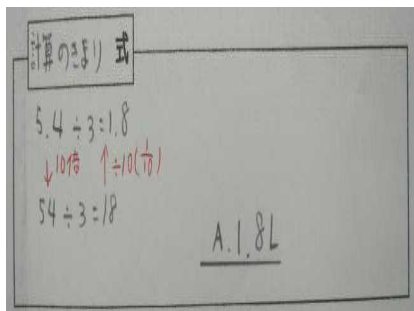 計算のきまり 式
5.4÷3=1.8
↓10倍 ↑÷10(1/10)
54÷3=18
A.1.8L